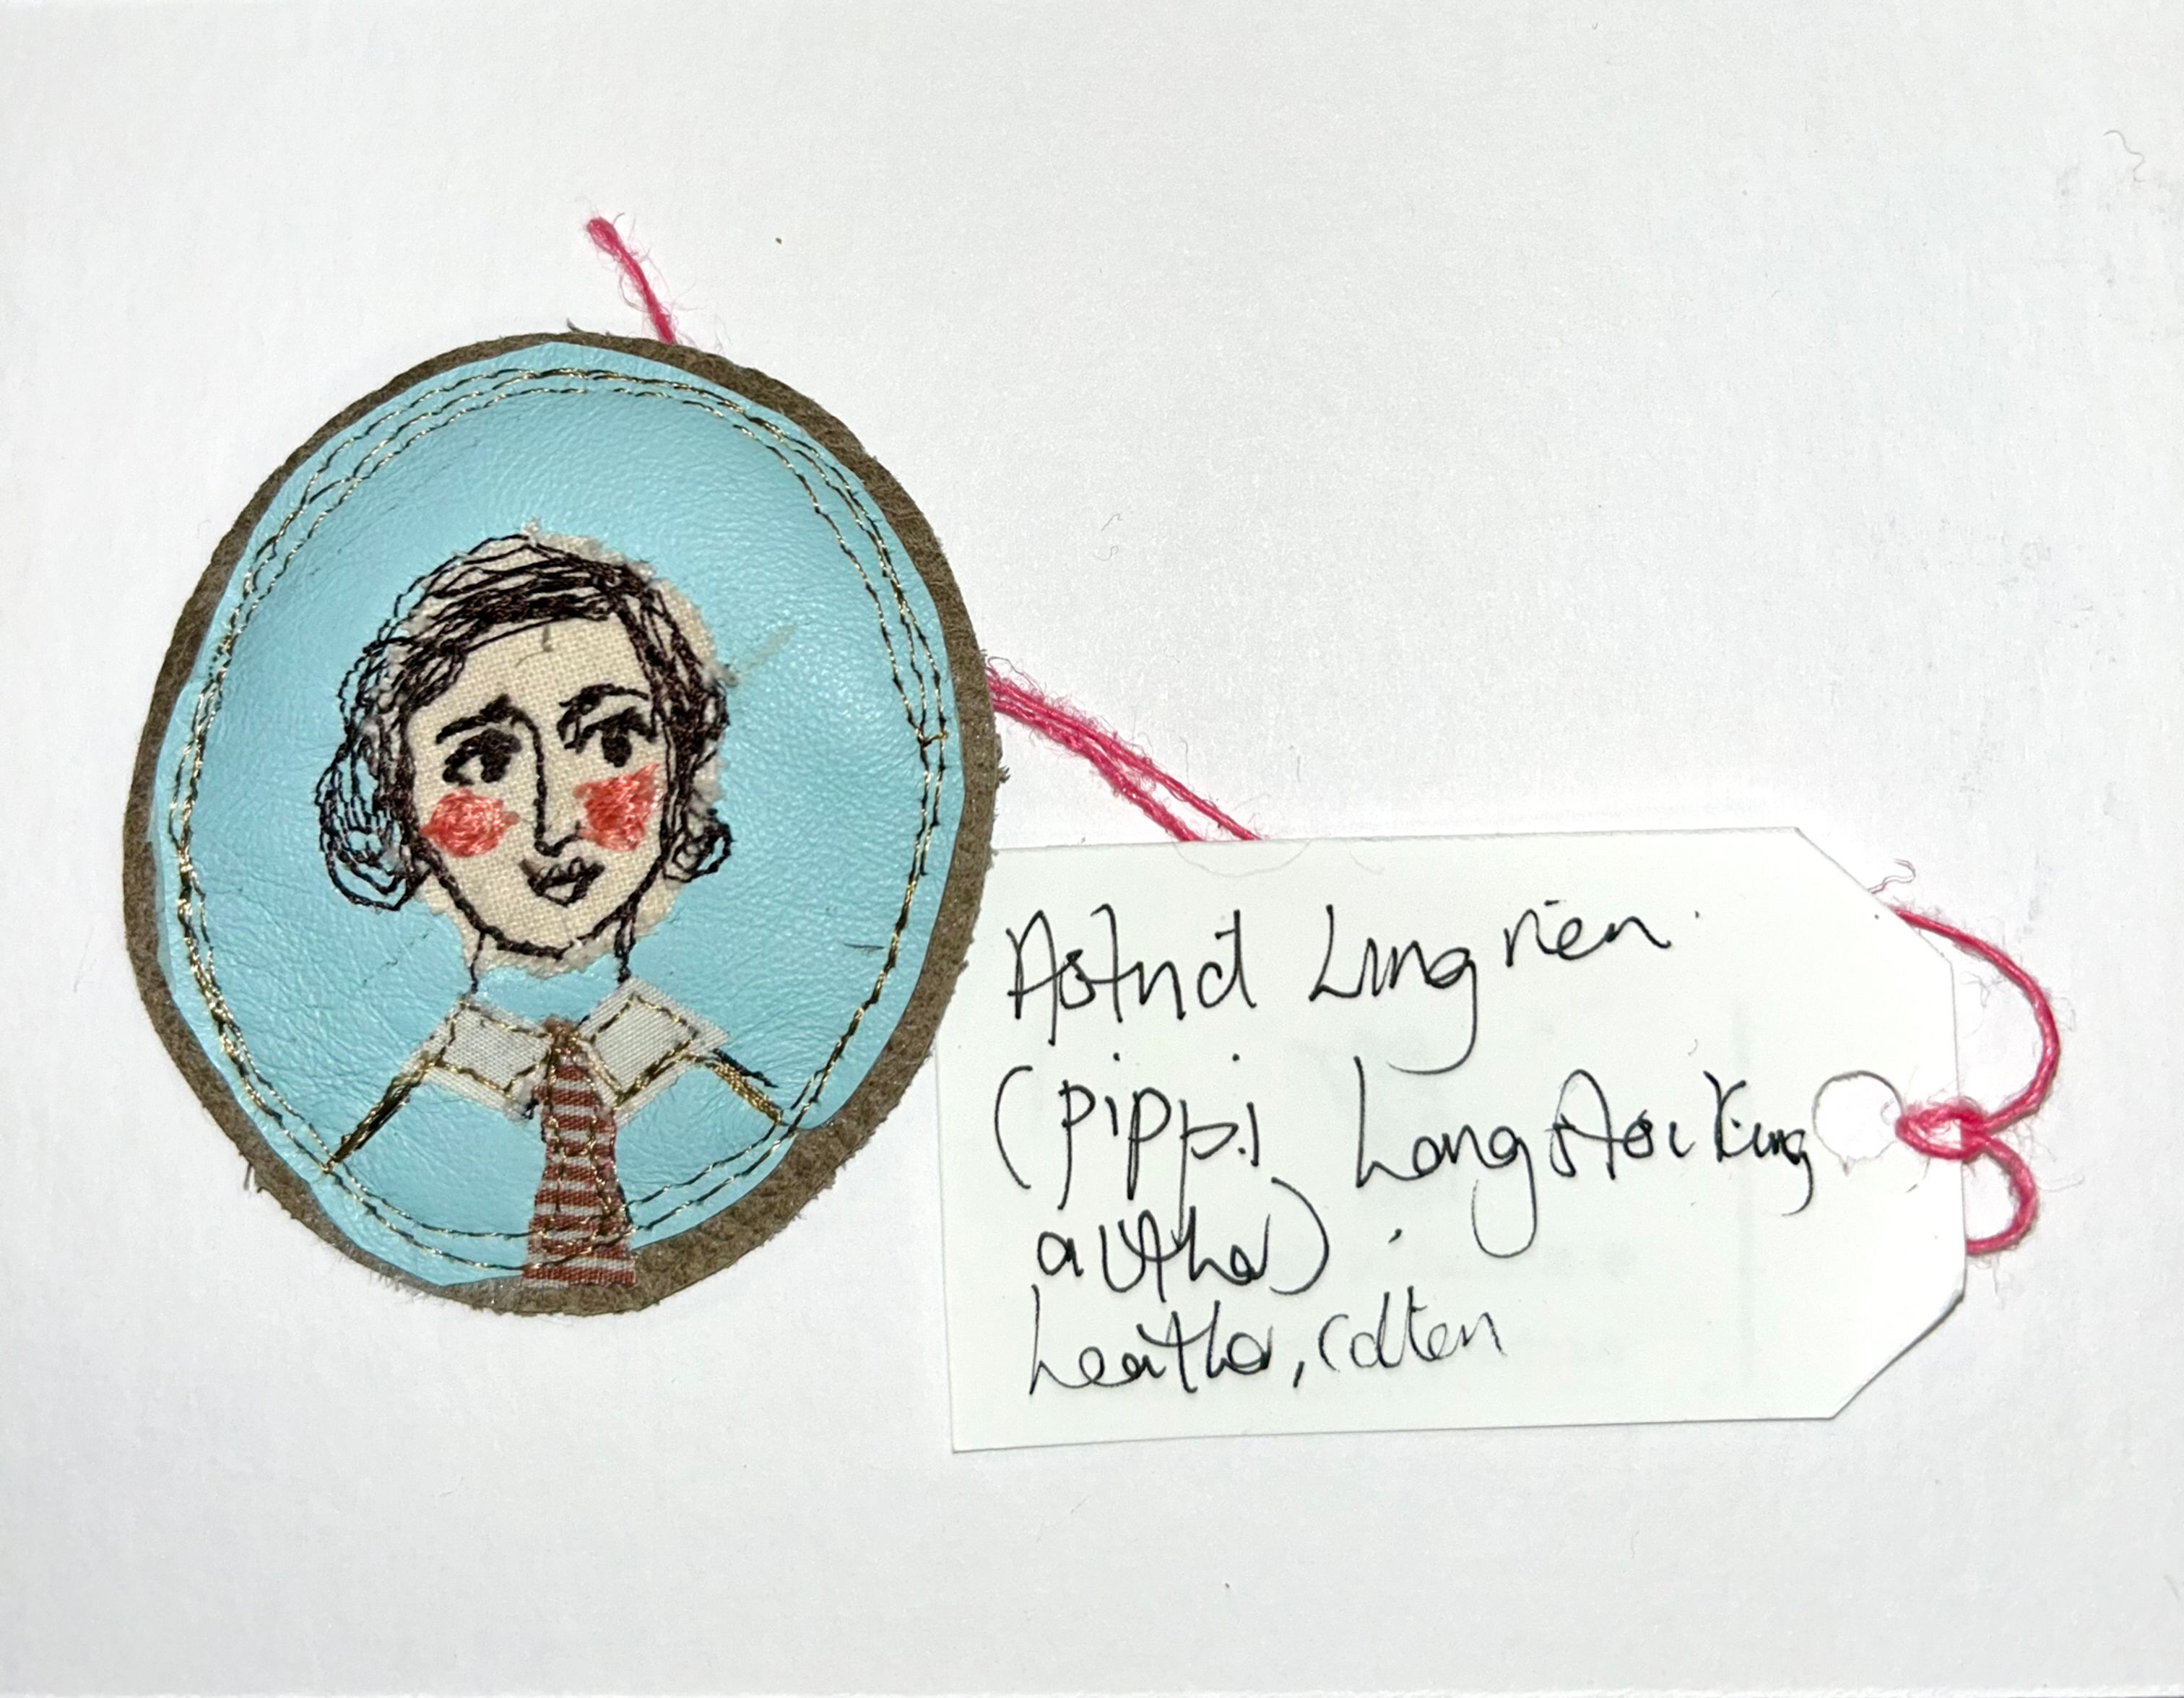 Astrid Lingrien.
(pippi Longstocking
author).
Leather, cotten